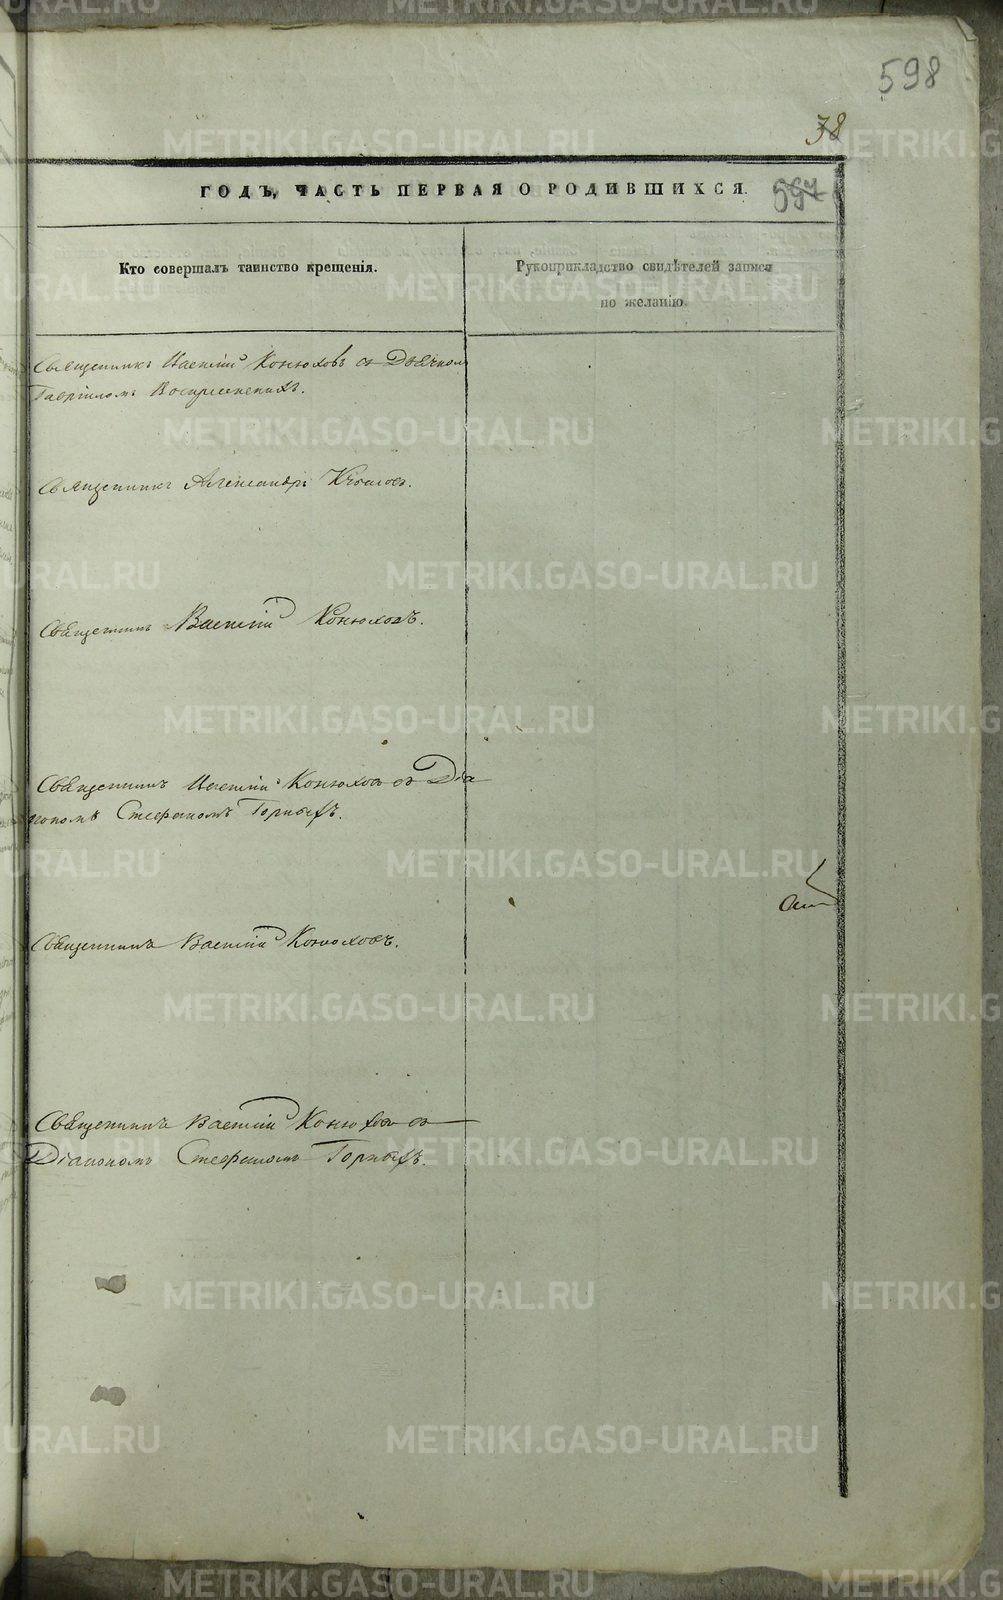 598
38
ГОДЪ, ЧАСТЬ ПЕРВАЯ О РОДИВШИХСЯ.
597
Кто совершалъ таинство крещенія.
Рукоприкладство свидѣтелей записи
по желанію.
Священникъ Василій Конюховъ съ Дьячкомъ
Гавріиломъ Воскресенскихъ.
Священникъ Александръ
Священникъ Василій Конюховъ.
Священникъ Василій Конюховъ съ Діа
кономъ Стефаномъ Горныхъ.
Священникъ Василій Конюховъ.
Священникъ Василій Конюховъ съ
Діакономъ Стефаномъ Горныхъ.
METRIKI.GASO-URAL.RU